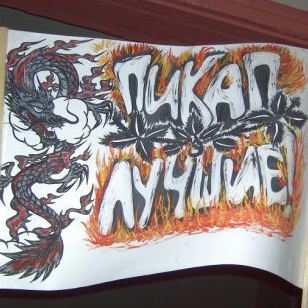 ПИКАП
ЛУЧШИЕ!